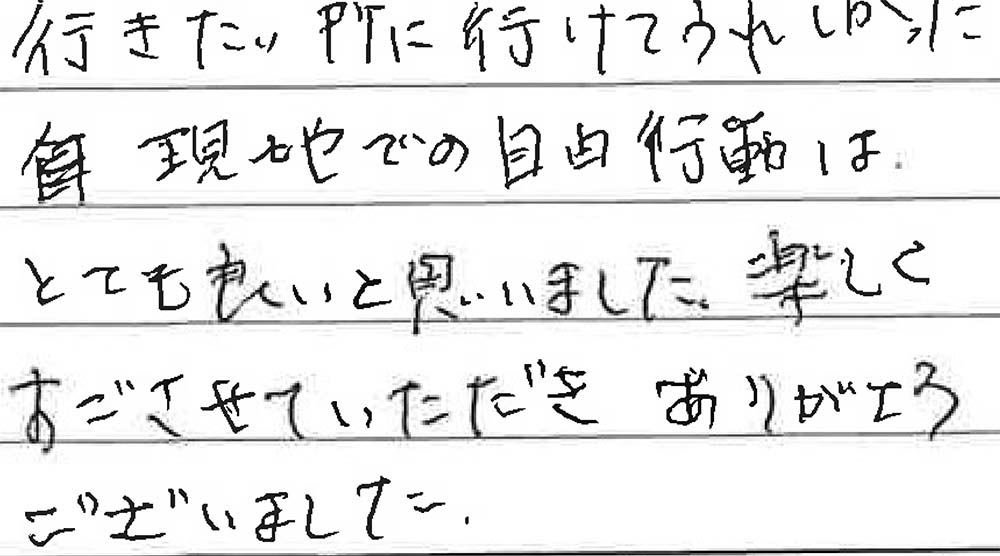 行きたい所に行けてうれしかった
現地での自由行動は.
とても良いと思いました。楽しく
すごさせていただき ありがとう
ございました.